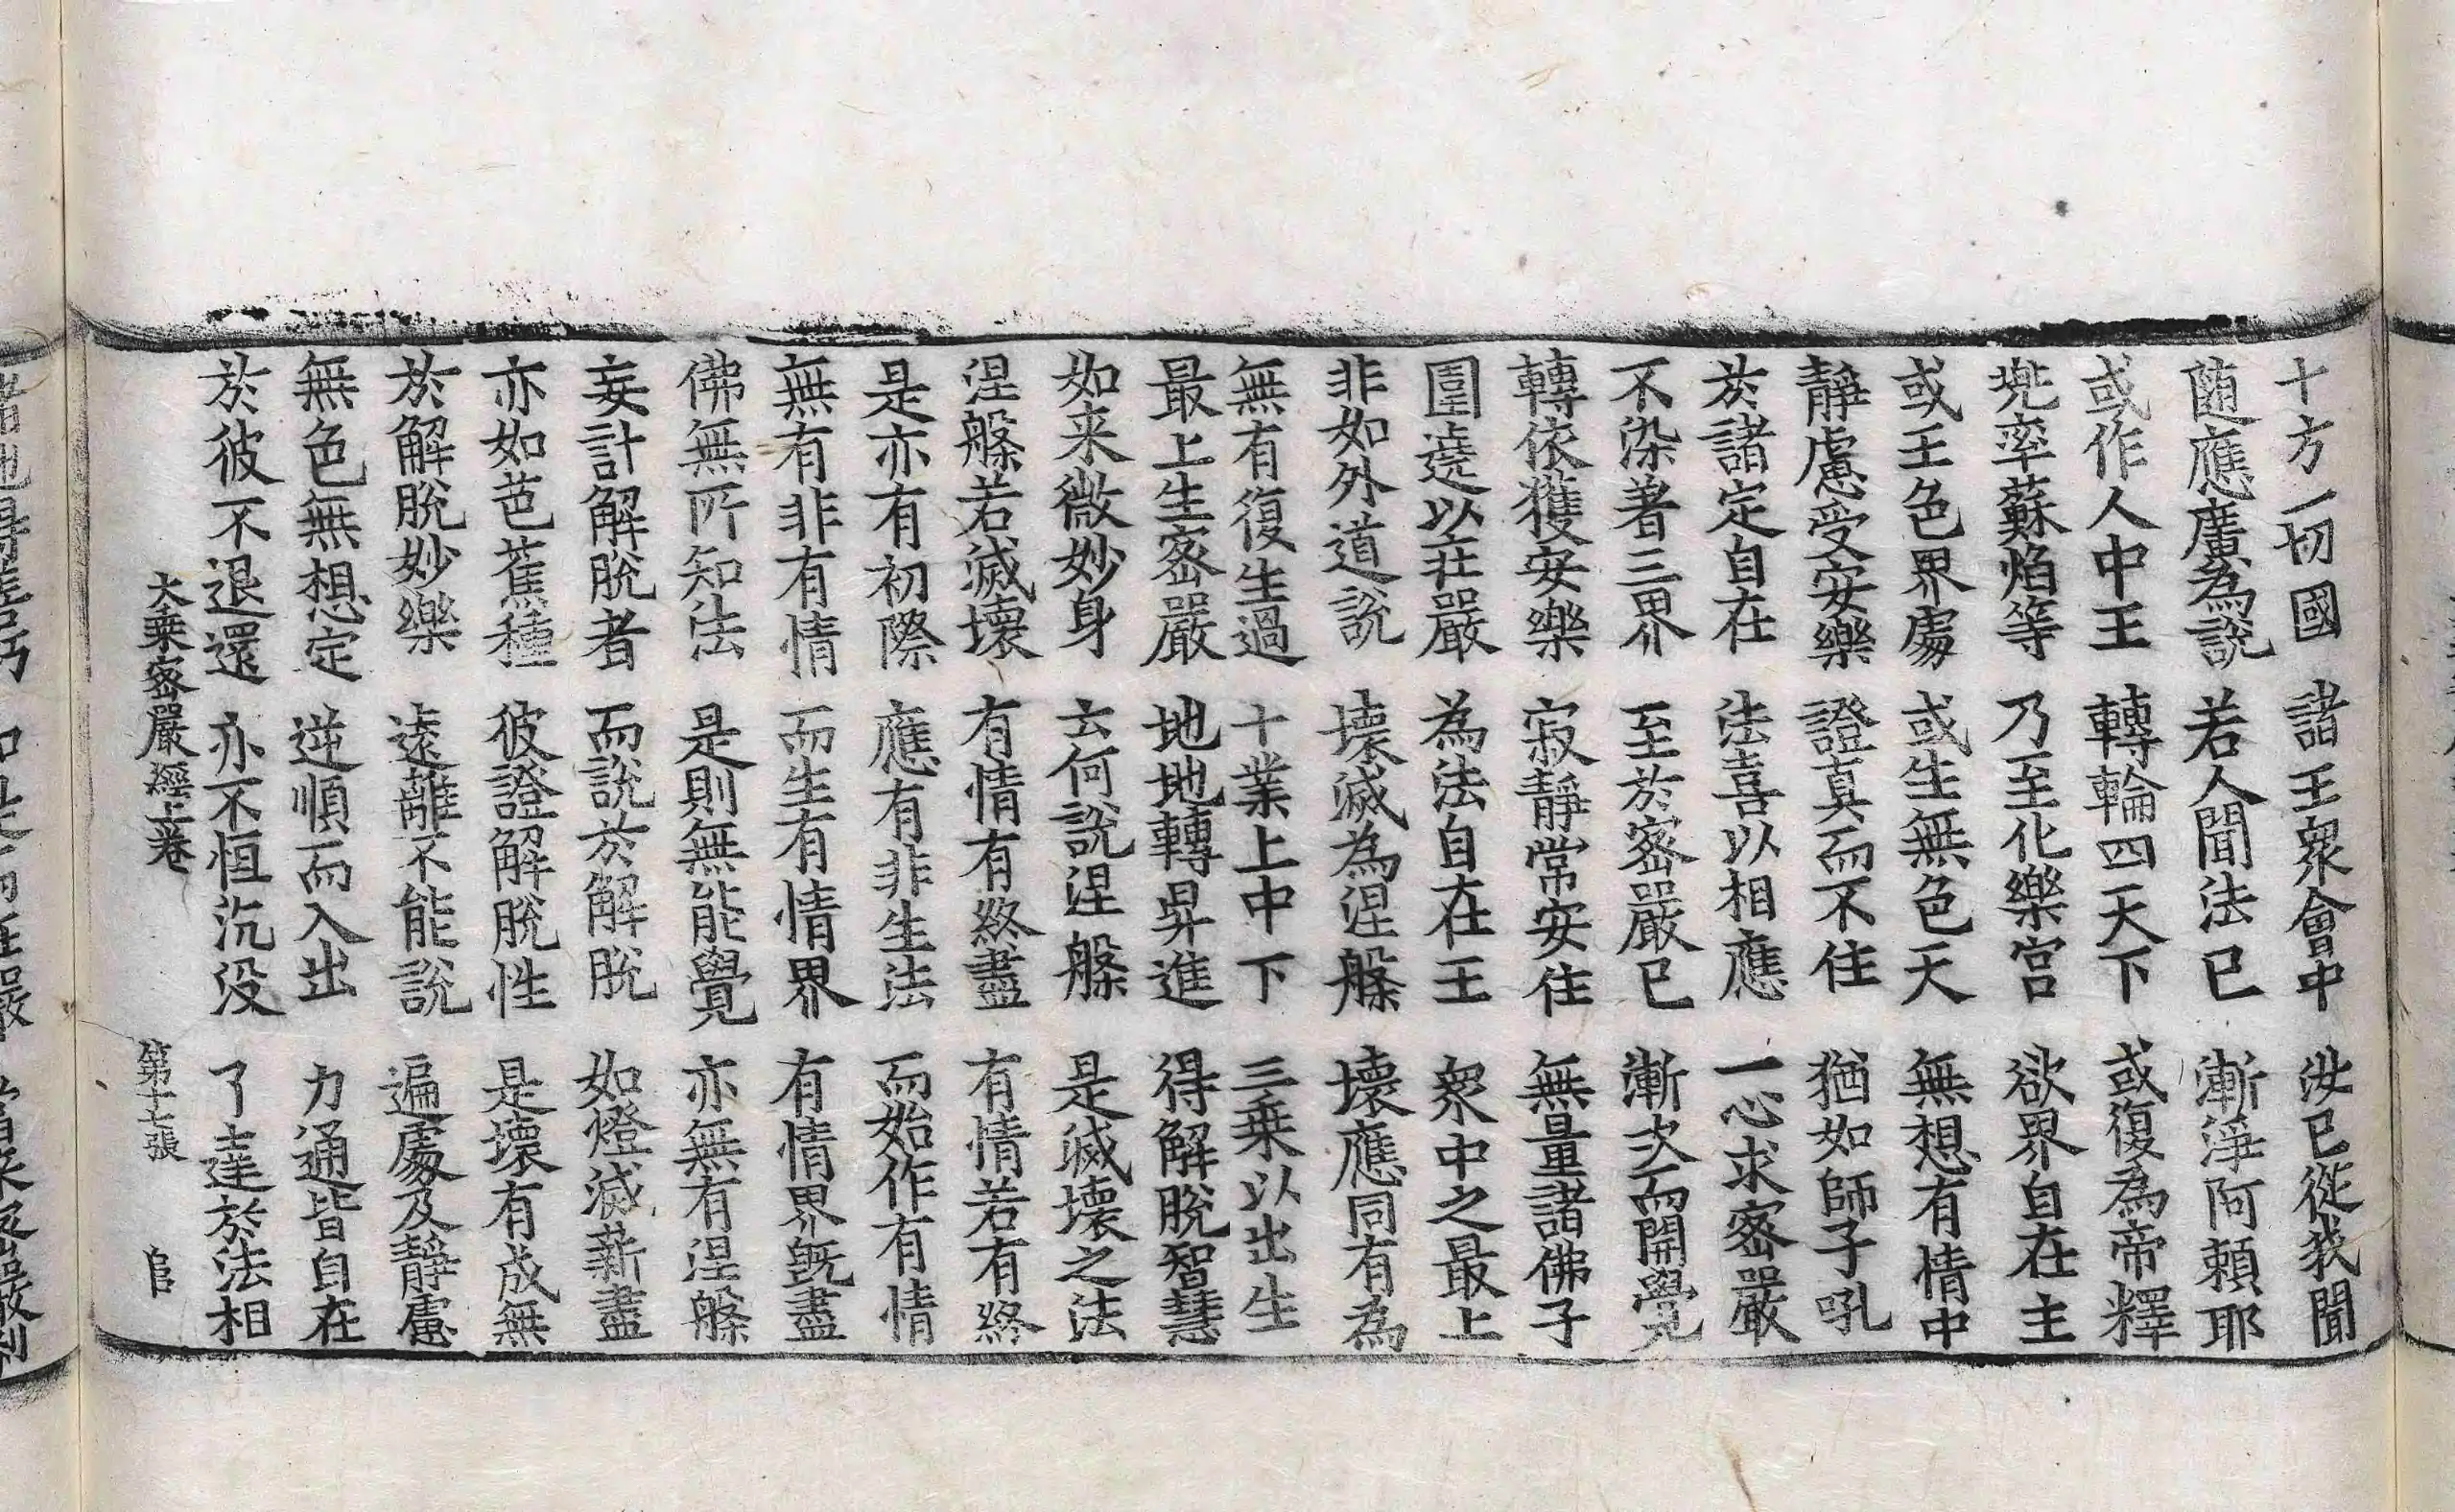 十方一切國　諸王衆會中　汝已從我聞
随應廣為說　若人聞法已　漸淨阿頼耶
或作人中王　轉輪四天下　或復為帝釋
兠率蘇焰等　乃至化樂宫　欲界自在主
或王色界處　或生無色天　無想有情中
靜慮受安樂　證真而不住　猶如師子吼
於諸定自在　法喜以相應　一心求密嚴
不染著三界　至於密嚴已　漸次而開覺
轉依獲安樂　寂靜常安住　無量諸佛子
圍遶以莊嚴　為法自在王　衆中之最上
非如外道說　壞滅為涅槃　壞應同有為
無有復生過　十業上中下　三乗以出生
最上生密嚴　地地轉昇進　得解脫智慧
如来微妙身　云何說涅槃　是滅壞之法
涅槃若滅壞　有情有終盡　有情若有終
是亦有初際　應有非生法　而始作有情
無有非有情　而生有情界　有情界旣盡
佛無所知法　是則無能覺　亦無有涅槃
妄計解脫者　而說於解脫　如燈滅薪盡
亦如芭蕉種　彼證解脫性　是壞有成無
於解脫妙樂　遠離不能說　遍處及靜慮
無色無想定　逆順而入出　力通皆自在
於彼不退還　亦不恒沉没　了達於法相
大乗密嚴經上卷　第十七張